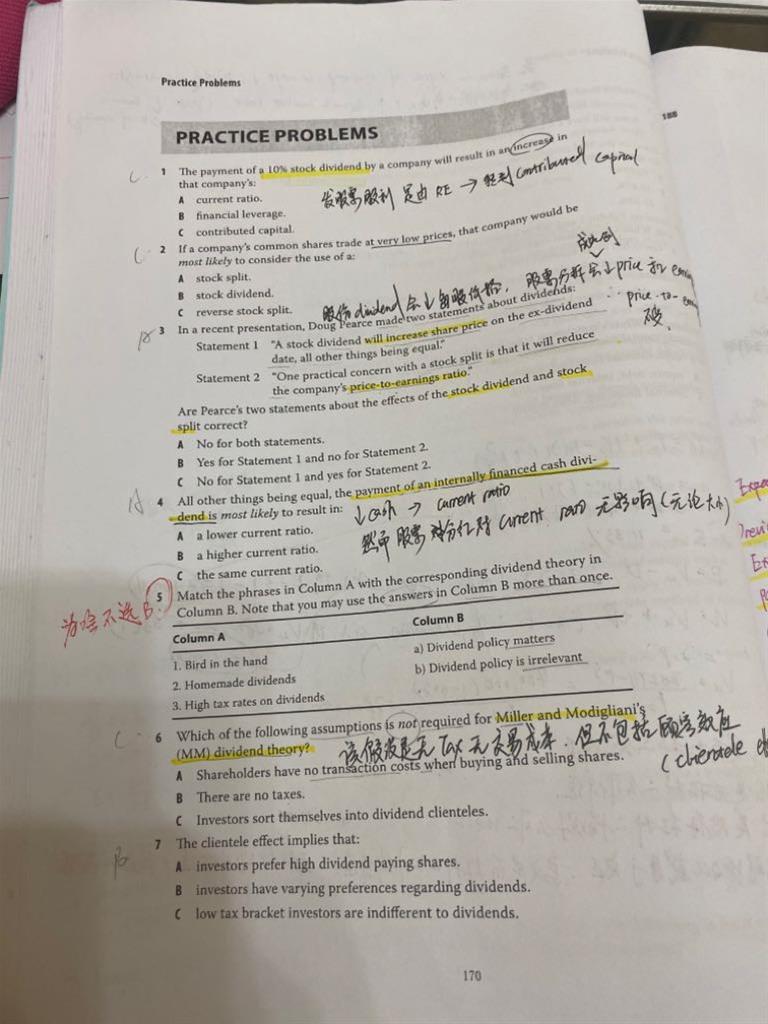 Practice Problems
188
PRACTICE PROBLEMS
C
1 The payment of a 10% stock dividend by a company will result in an increase in
that company's:
A current ratio.
发股票股利 是由 RE → 转到 contributed capital
B financial leverage.
C contributed capital.
C
2 If a company's common shares trade at very low prices, that company would be
most likely to consider the use of a:
A stock split.
B stock dividend.
C reverse stock split.
成比例
股份 dividend 会↓每股价格, 股票分拆会↓price 和
∴ price-to-
不变.
3 In a recent presentation, Doug Pearce made two statements about dividends:
Statement 1 "A stock dividend will increase share price on the ex-dividend
date, all other things being equal."
Statement 2 "One practical concern with a stock split is that it will reduce
the company's price-to-earnings ratio."
Are Pearce's two statements about the effects of the stock dividend and stock
split correct?
A No for both statements.
B Yes for Statement 1 and no for Statement 2.
C No for Statement 1 and yes for Statement 2.
A
4 All other things being equal, the payment of an internally financed cash divi-
dend is most likely to result in:
↓cash → current ratio
A a lower current ratio.
B a higher current ratio.
股票 对 current ratio 无影响(无论大小)
C the same current ratio.
为啥不选B.
5 Match the phrases in Column A with the corresponding dividend theory in
Column B. Note that you may use the answers in Column B more than once.
Column A Column B
1. Bird in the hand a) Dividend policy matters
2. Homemade dividends b) Dividend policy is irrelevant
3. High tax rates on dividends
C
6 Which of the following assumptions is not required for Miller and Modigliani's
(MM) dividend theory?
该假设是无Tax 无交易成本. 但不包括顾客效应
(clientele
A Shareholders have no transaction costs when buying and selling shares.
B There are no taxes.
C Investors sort themselves into dividend clienteles.
B
7 The clientele effect implies that:
A investors prefer high dividend paying shares.
B investors have varying preferences regarding dividends.
C low tax bracket investors are indifferent to dividends.
170